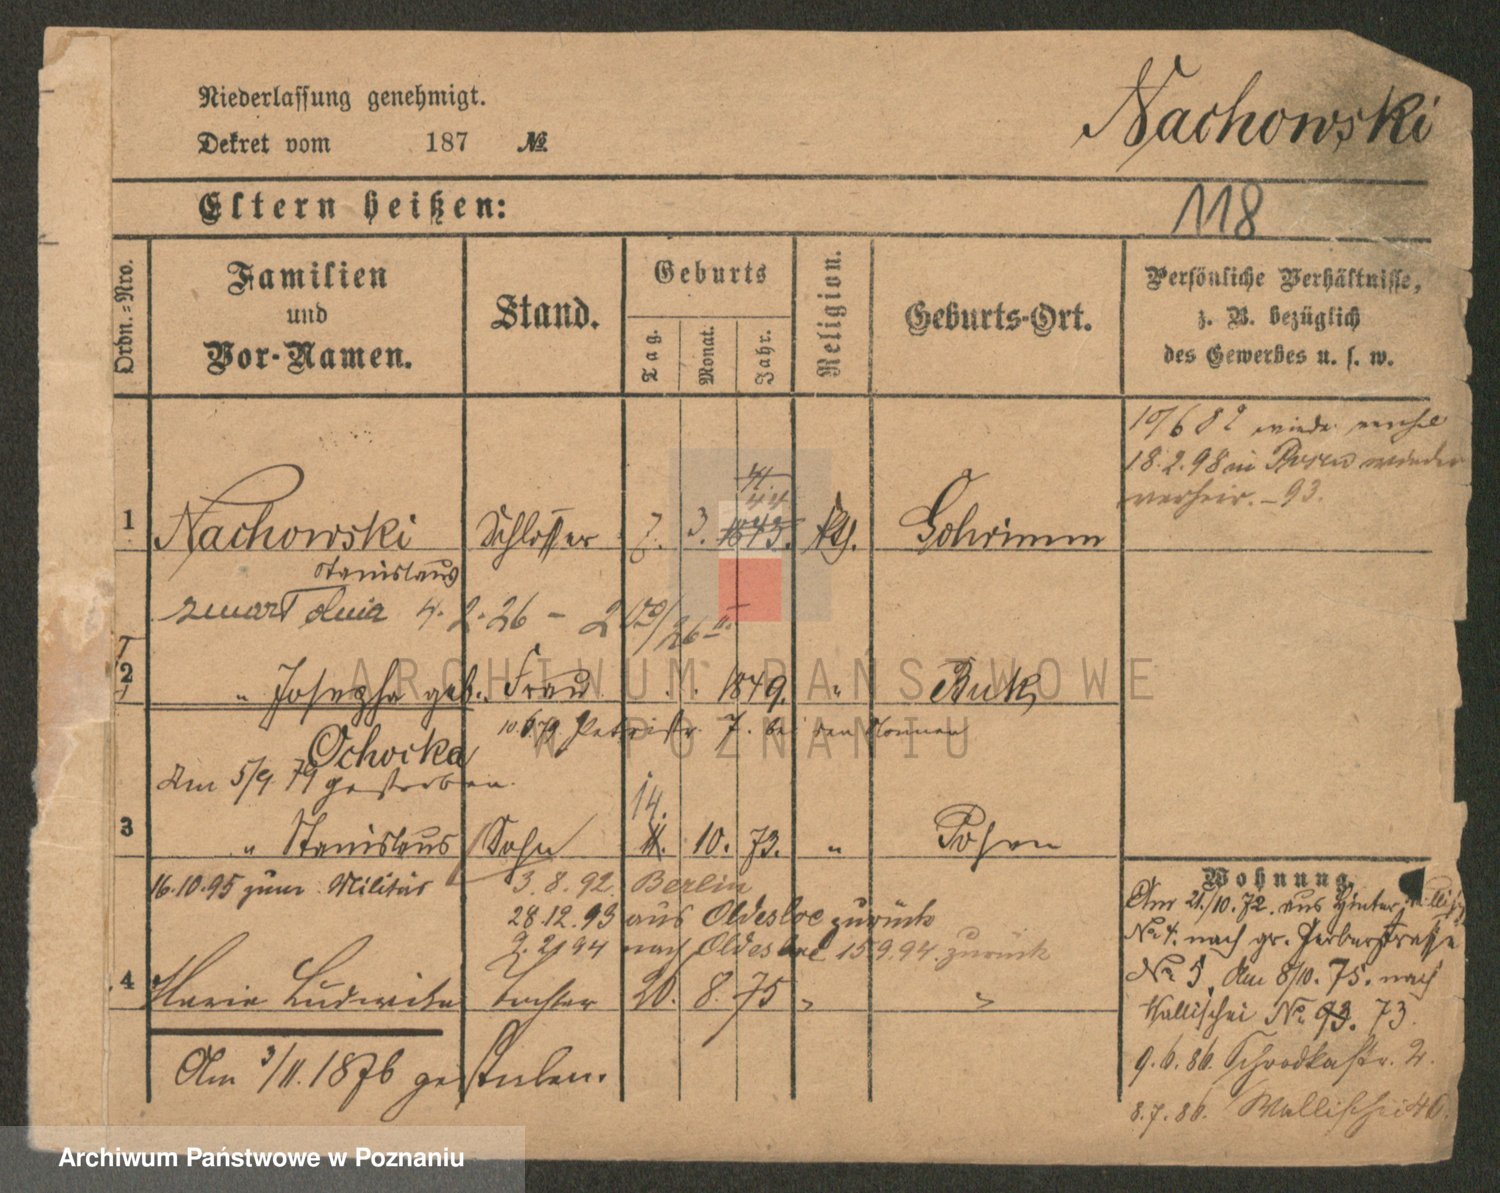 Niederlassung genehmigt.
Dekret vom 187 №
Nachowski
118
Eltern heißen:
Ordn.=Nro.
Familien
und
Vor-Namen.
Stand.
Geburts
Tag.
Monat.
Jahr.
Religion.
Geburts-Ort.
Persönliche Verhältnisse,
z. B. bezüglich
des Gewerbes u. s. w.
18.2.98 in Posen wieder
verheir. - 93.
44
1 Nachowski Schlosser 7. 3. 1843. kth. Schrimm
Stanislaus
zmarł dnia 4. 2. 26 -
2 " Josepha geb. Frau . . 1849. " Buk
10.6.79 Petristr. 7. bei den Nonnen
Ochocka
Am 5/9 79 gestorben.
14.
3 " Stanislaus Sohn 11. 10. 73. " Posen
16.10.95 zum Militär 3.8.92 Berlin
28.12.93 aus Oldesloe zurück
2.2.94 nach Oldesloe 15.9.94 zurück
4 Maria Ludwika Tochter 20. 8. 75 " "
Am 3/11. 1876 gestorben.
Wohnung
Am 21./10. 72. aus Hinter
№ 4. nach gr. Gerberstrasse
№ 5. Am 8/10. 75. nach
Wallischei № 93. 73.
9.6.86. Schrodkastr. 2.
8.7.86. Wallischei 46.
ARCHIWUM PAŃSTWOWE
W POZNANIU
Archiwum Państwowe w Poznaniu